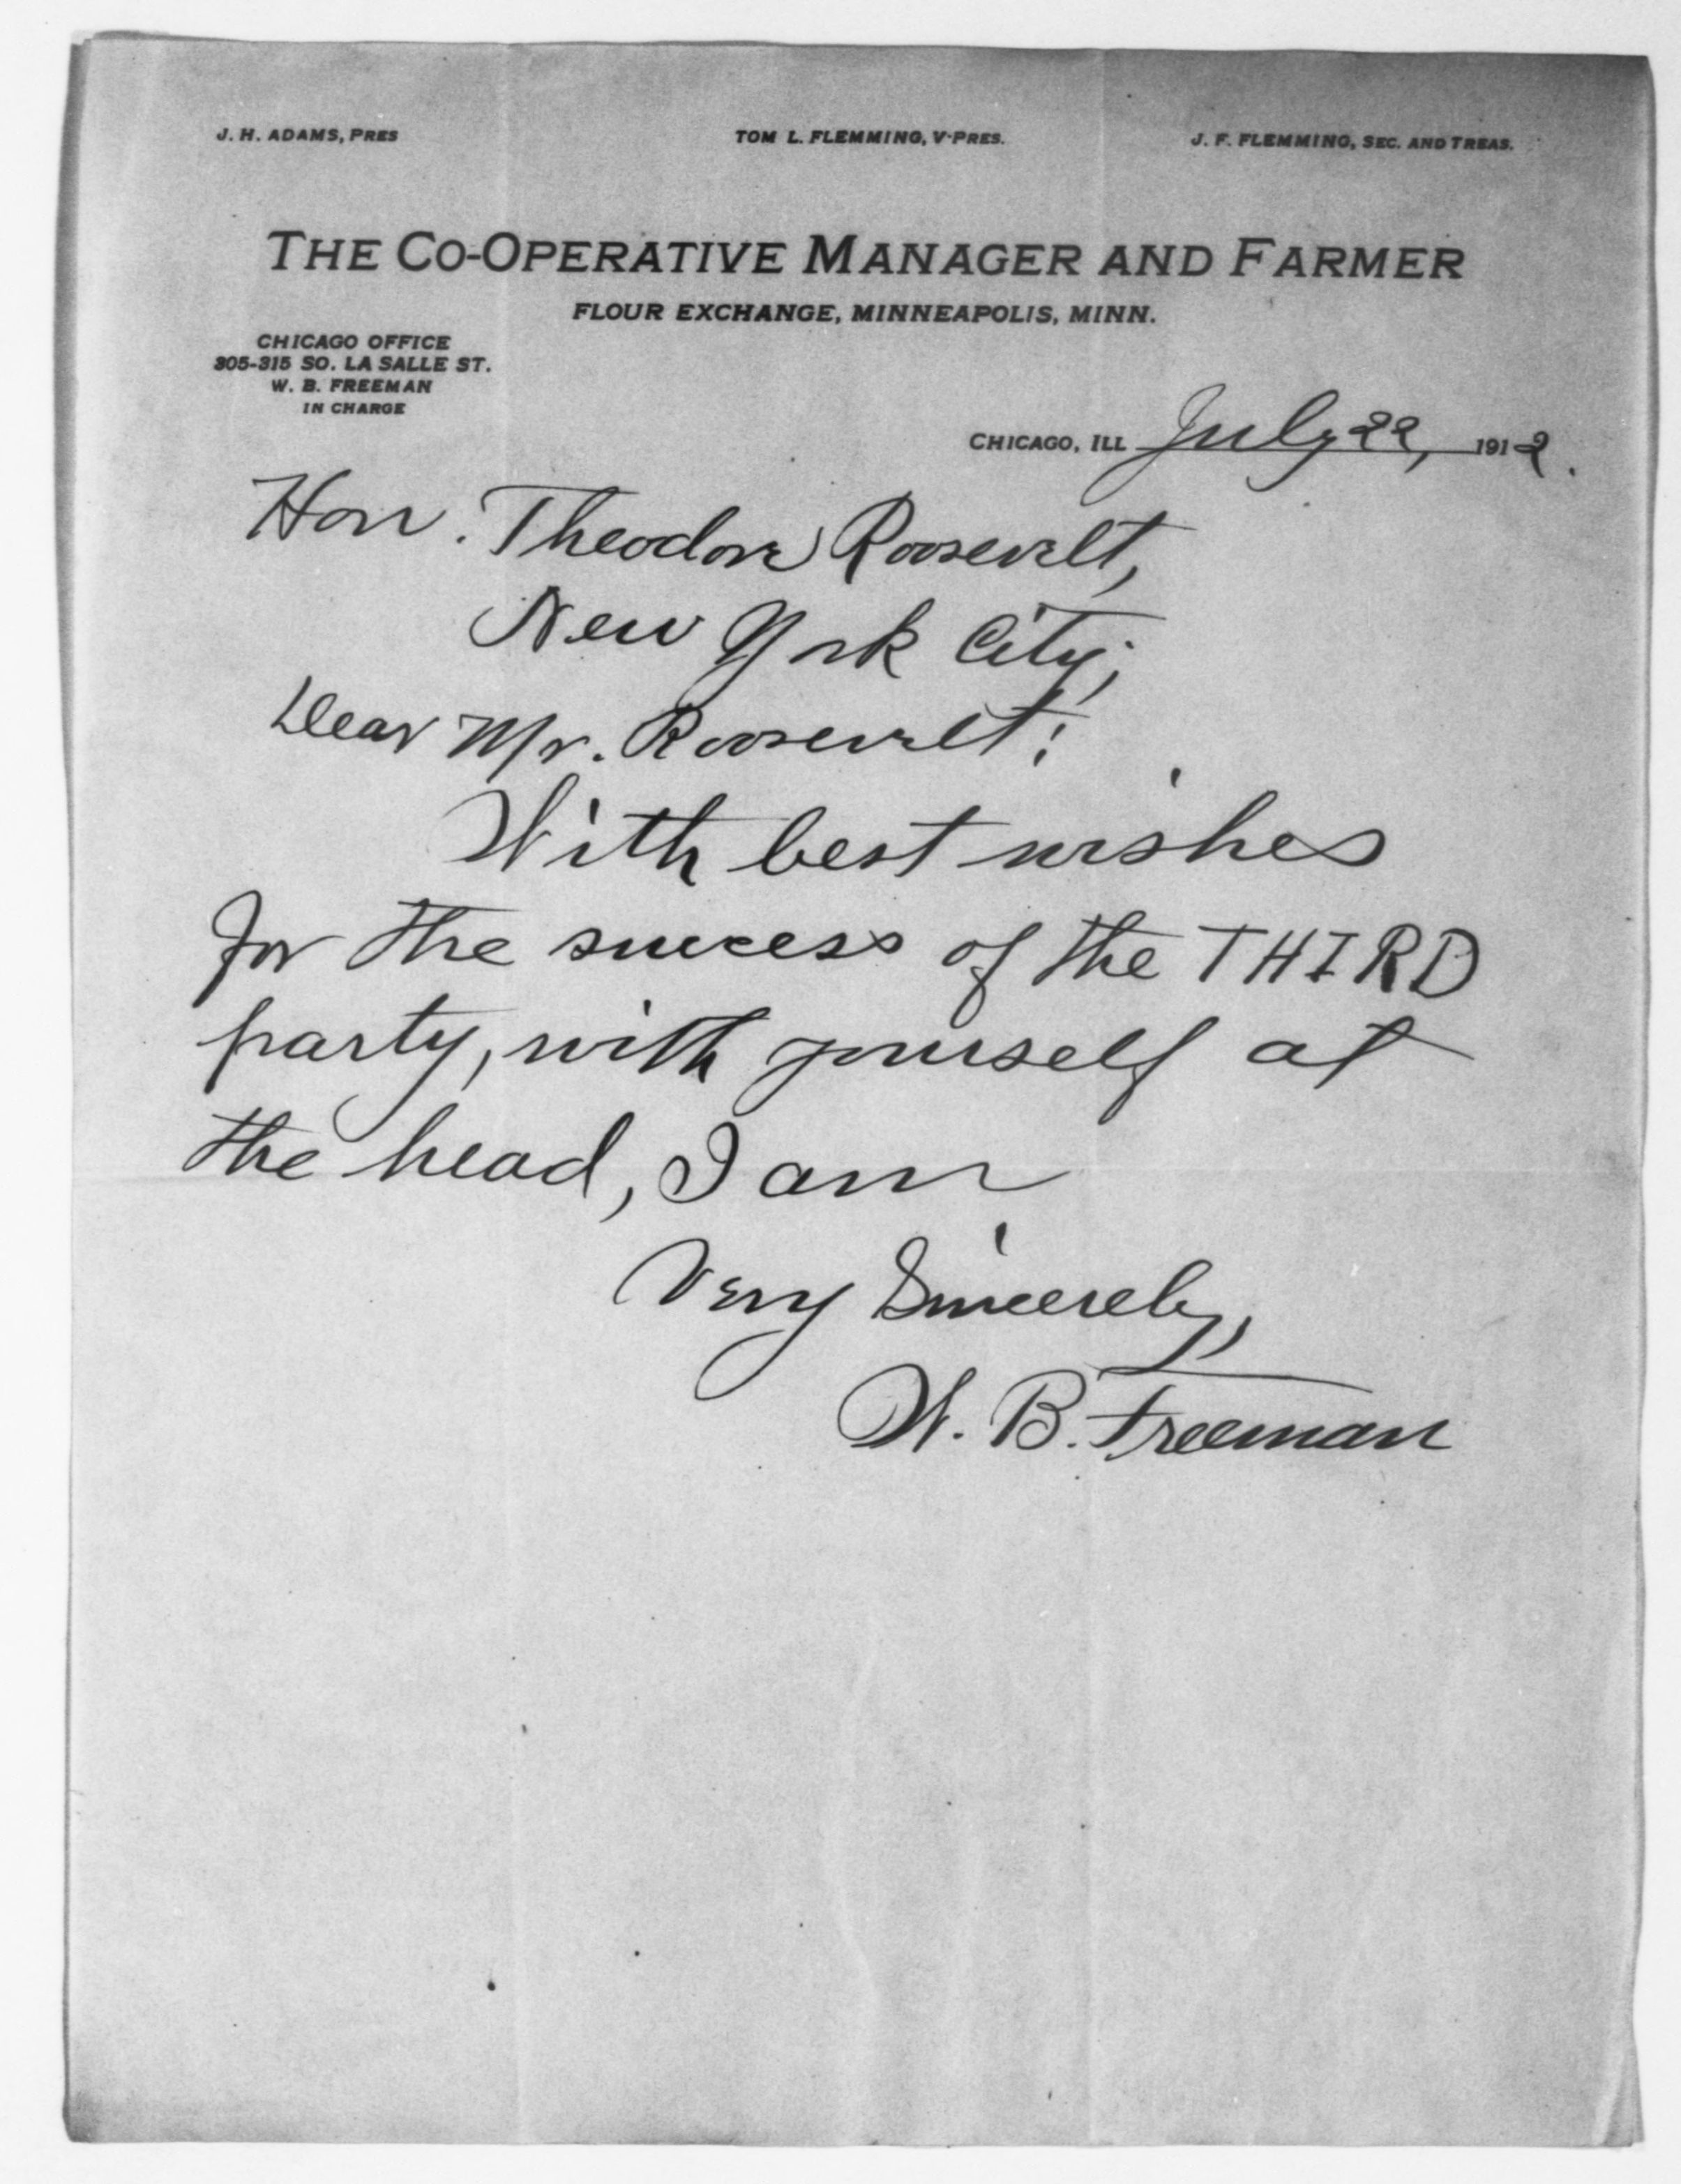 J. H. ADAMS, PRES
TOM L. FLEMMING, V-PRES.
J. F. FLEMMING, SEC. AND TREAS.
THE CO-OPERATIVE MANAGER AND FARMER
FLOUR EXCHANGE, MINNEAPOLIS, MINN.
CHICAGO OFFICE
305-315 SO. LA SALLE ST.
W. B. FREEMAN
IN CHARGE
CHICAGO, ILL July 22, 1912.
Hon. Theodore Roosevelt,
New York City;
Dear Mr. Roosevelt:
With best wishes
for the success of the THIRD
party, with yourself at
the head, I am
Very Sincerely,
W. B. Freeman